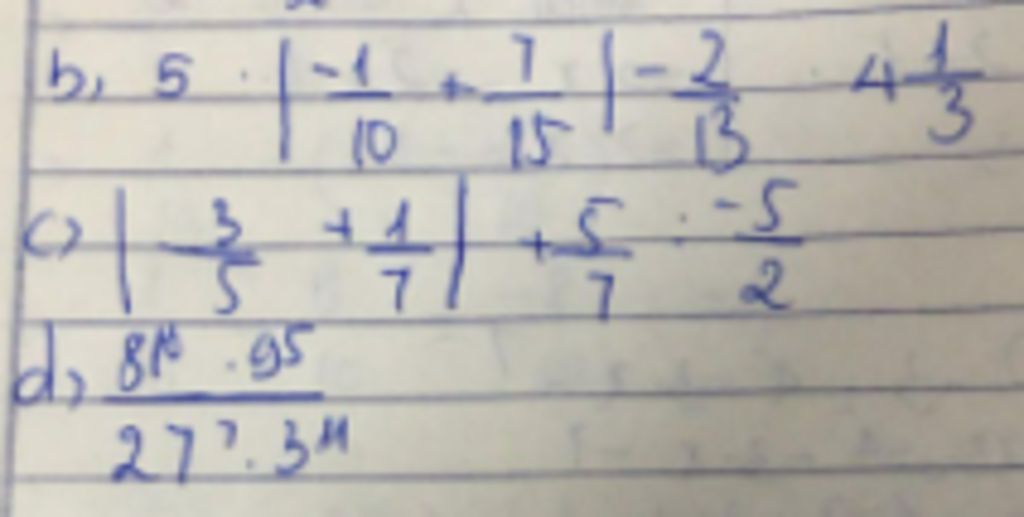 b, 5 . | -1/10 + 7/15 | - 2/13 . 4 1/3
c) | 3/5 + 1/7 | + 5/7 . -5/2
d, . 9^5 / 27^7 . 3^11